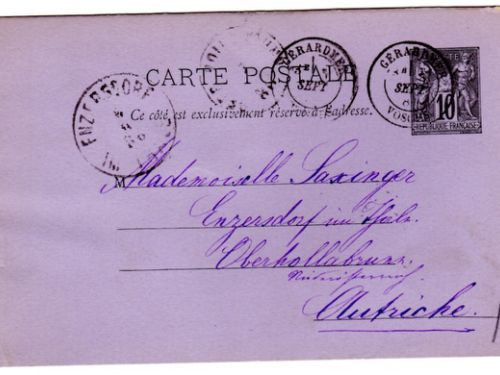 GÉRARDMER
SEPT
GÉRARDMER
SEPT
VOSGES
CARTE POSTALE
Ce côté est exclusivement réservé à l'adresse.
10
REPUBLIQUE FRANÇAISE
ENZERSDORF
M Mademoiselle Saxinger
Enzersdorf im Thale
Oberhollabrunn
Niederösterreich
Autriche.